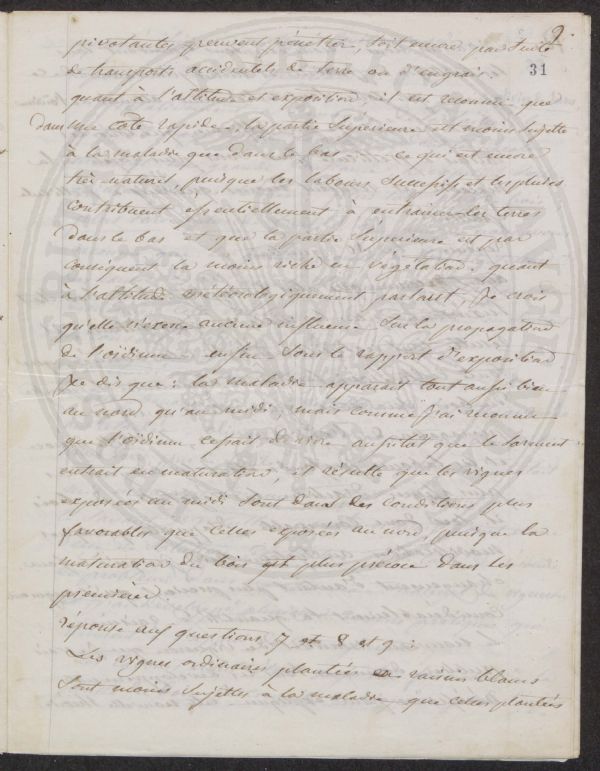 9
31
pivotantes peuvent pénétrer, soit encore par suite
de transports accidentels de terre ou d'engrais.
quant à l'altitude et exposition, il est reconnu que
dans une côte rapide, la partie supérieure est moins sujette
à la maladie que dans le bas ce qui est encore
très naturel, puisque les labours successifs et les pluies
contribuent essentiellement à entrainer les terres
dans le bas et que la partie supérieure est par
conséquent la moins riche en végétation. quant
à l'altitude météorologiquement parlant, Je crois
qu'elle n'exerce aucune influence sur la propagation
de l'oïdium. enfin sous le rapport d'exposition
Je dis que : la maladie apparait tout aussi bien
au nord qu'au midi, mais comme j'ai reconnu
que l'oïdium cessait de vivre aussitôt que le sarment
entrait en maturation, il résulte que les vignes
exposées au midi sont dans des conditions plus
favorables que celles exposées au nord, puisque la
maturation du bois est plus précoce dans les
premières
réponse aux questions 7 et 8 et 9 :
Les vignes ordinaires plantées en raisins blancs
sont moins sujettes à la maladie que celles plantées